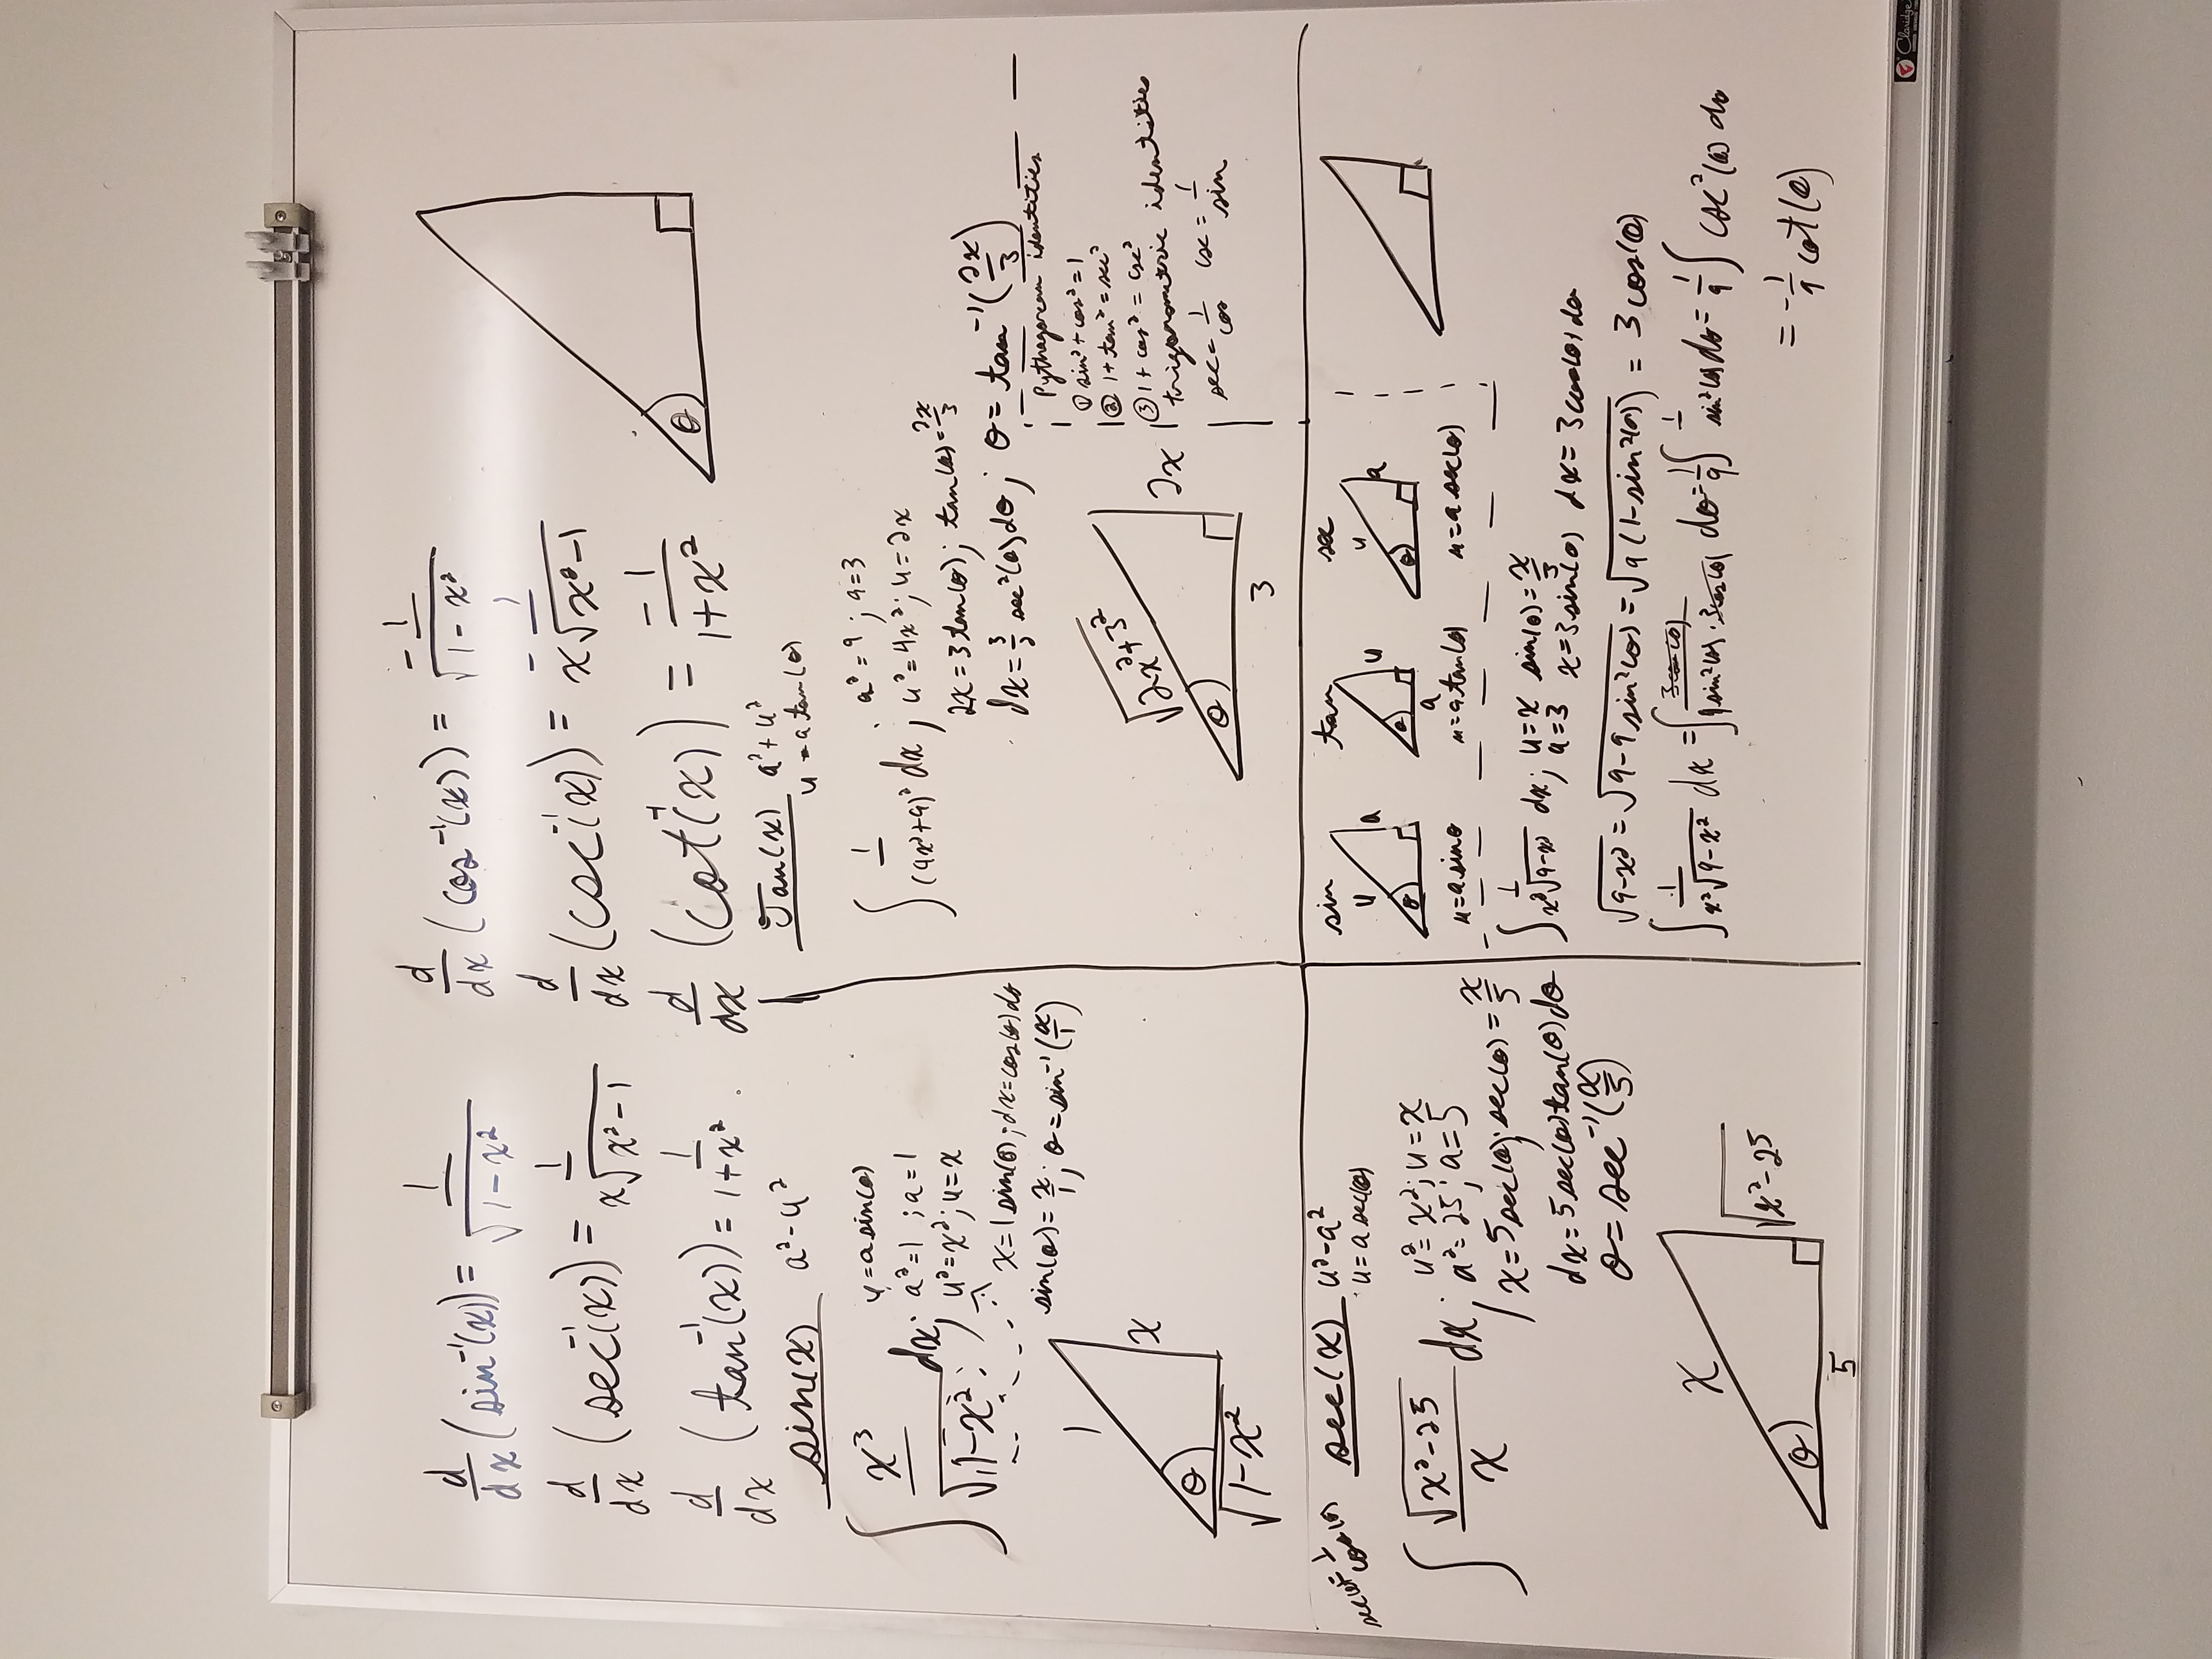 d/dx (sin⁻¹(x)) = 1/√(1-x²)
d/dx (cos⁻¹(x)) = -1/√(1-x²)
d/dx (sec⁻¹(x)) = 1/x√(x²-1)
d/dx (csc⁻¹(x)) = -1/x√(x²-1)
d/dx (tan⁻¹(x)) = 1/1+x²
d/dx (cot⁻¹(x)) = -1/1+x²
θ
sin(x) a²-u²
∫ x³/√(1-x²) dx; u=a sin(θ)
a²=1 ; a=1
u²=x²; u=x
x=1 sin(θ); dx=cos(θ)dθ
sin(θ)=x/1; θ=sin⁻¹(x/1)
1
x
θ
√(1-x²)
Tan(x) a²+u²
u=a tan(θ)
∫ 1/(4x²+9)² dx; a²=9; a=3
u²=4x²; u=2x
2x=3tan(θ); tan(θ)=2x/3
dx=3/2 sec²(θ)dθ; θ=tan⁻¹(2x/3)
Pythagorean identities
① sin²+cos²=1
② 1+tan²=sec²
③ 1+cos²=csc²
trigonometric identities
sec=1/cos csc=1/sin
√(2x²+3²)
2x
θ
3
sec(θ)=1/cos(θ)
sec(x) u²-a²
u=a sec(θ)
∫ √(x²-25)/x dx; u²=x²; u=x
a²=25; a=5
x=5sec(θ); sec(θ)=x/5
dx=5sec(θ)tan(θ)dθ
θ=sec⁻¹(x/5)
x
√(x²-25)
θ
5
sin tan sec
u a θ
u θ a
u a θ
u=a sinθ u=a tan(θ) u=a sec(θ)
∫ 1/x²√(9-x²) dx; u=x sin(θ)=x/3
a=3 x=3sin(θ) dx=3cos(θ)dθ
√(9-x²)=√(9-9sin²(θ))=√(9(1-sin²(θ))) = 3cos(θ)
∫ 1/x²√(9-x²) dx = ∫ 3cos(θ)/9sin²(θ)·3cos(θ) dθ=1/9∫ 1/sin²(θ) dθ=1/9∫ csc²(θ) dθ
= -1/9 cot(θ)
Claridge